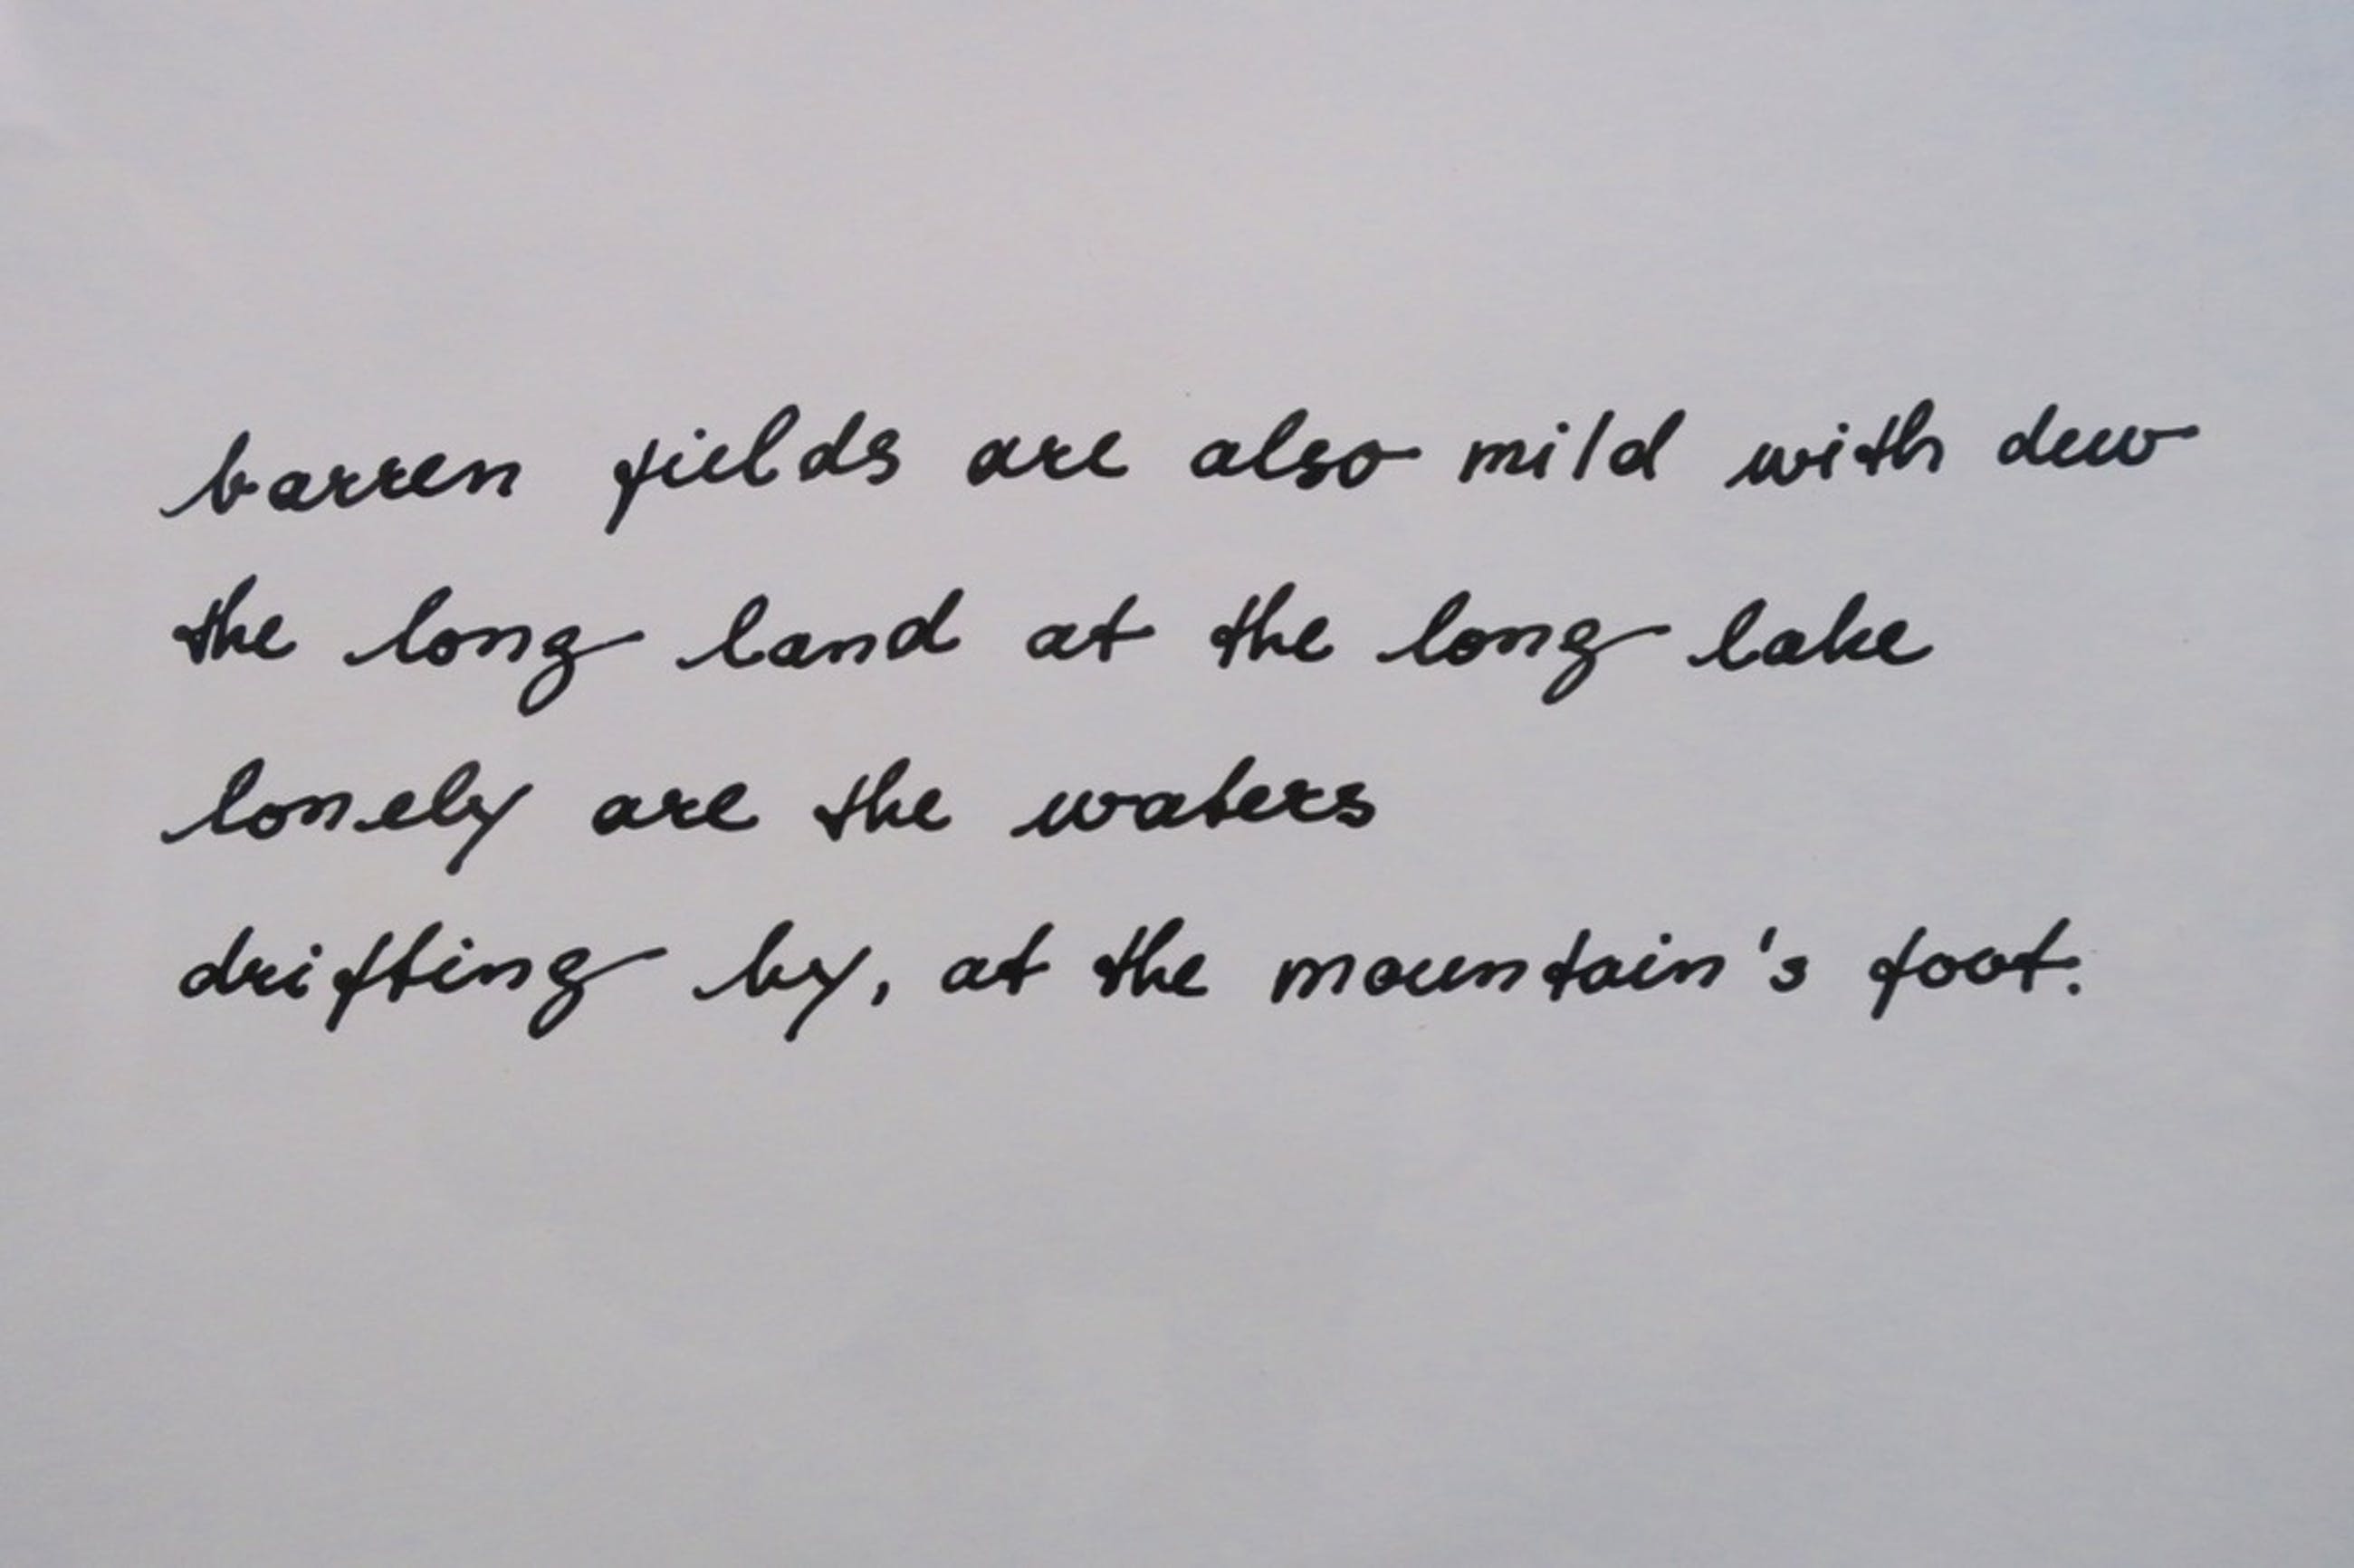 barren fields are also mild with dew
the long land at the long lake
lonely are the waters
drifting by, at the mountain's foot.